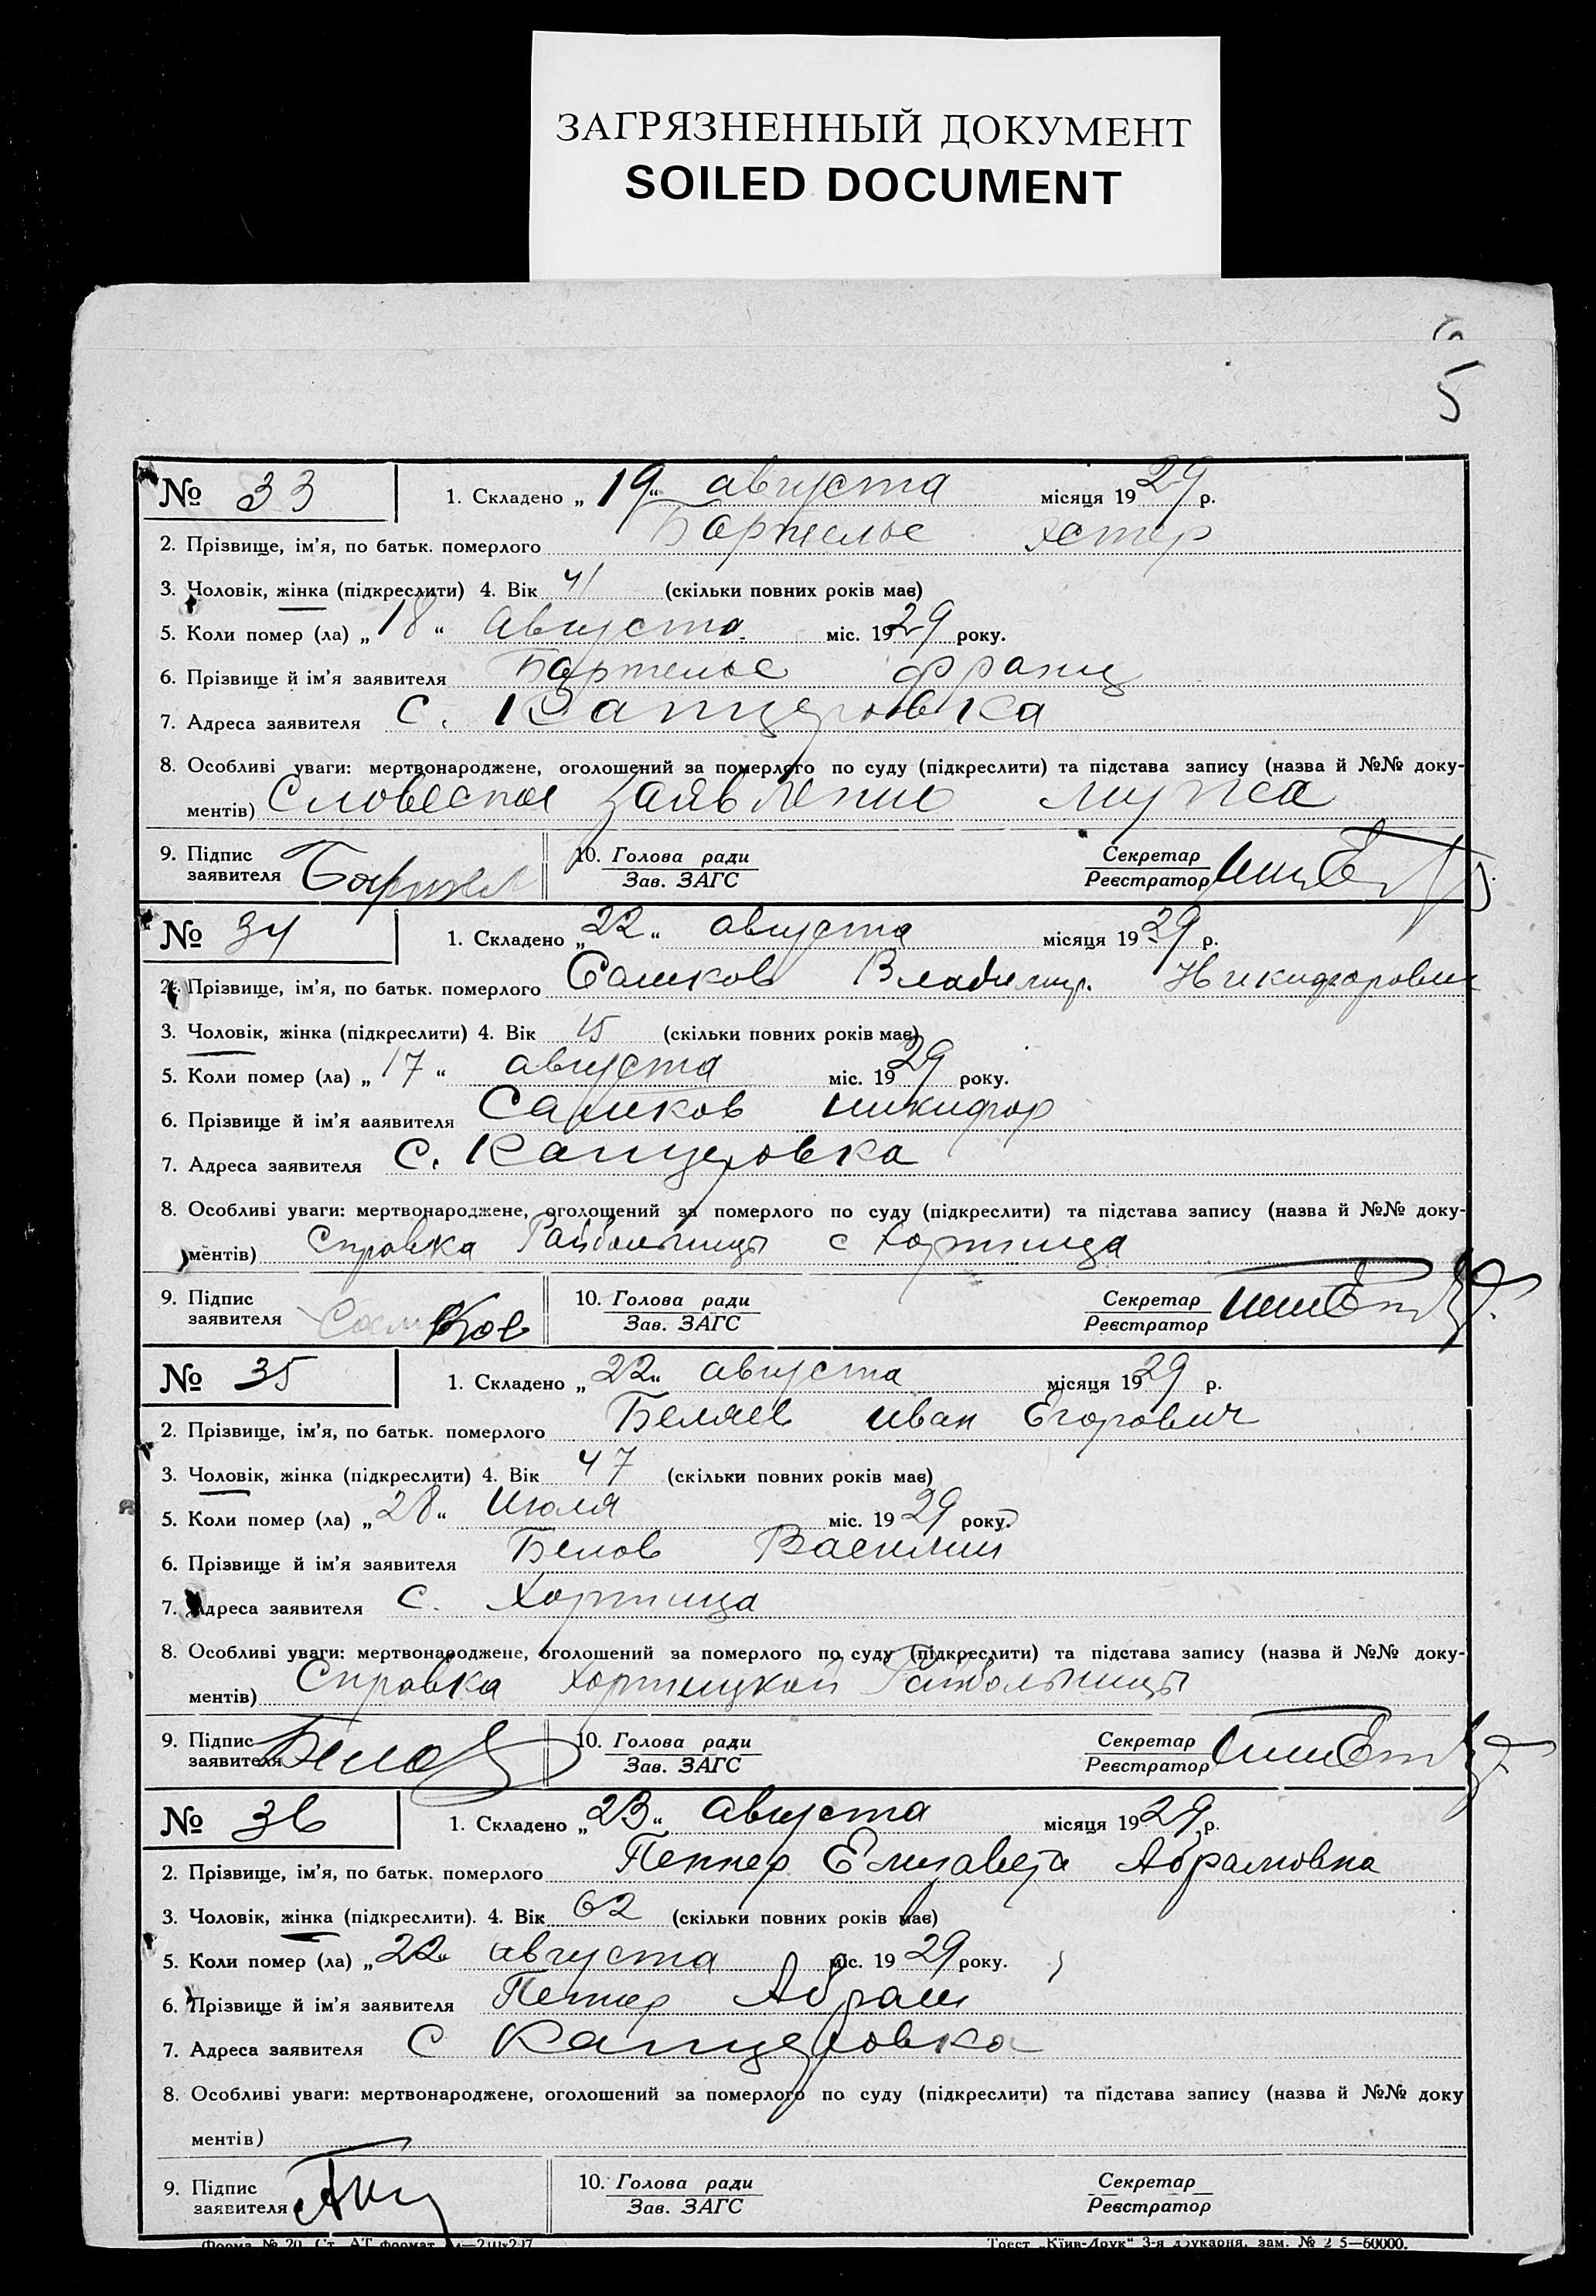 ЗАГРЯЗНЕННЫЙ ДОКУМЕНТ
SOILED DOCUMENT
5
№ 33 1. Складено „19“ августа місяця 1929 р.
2. Прізвище, ім'я, по батьк. померлого
3. Чоловік, жінка (підкреслити) 4. Вік 41 (скільки повних років має)
5. Коли помер (ла) „18“ Августа міс. 1929 року.
6. Прізвище й ім'я заявителя Франц
7. Адреса заявителя с. Канцеровка
8. Особливі уваги: мертвонароджене, оголошений за померлого по суду (підкреслити) та підстава запису (назва й №№ доку-
ментів) Словесное заявление мужа
9. Підпис заявителя 10. Голова ради Зав. ЗАГС Секретар Реєстратор
№ 34 1. Складено „22“ августа місяця 1929 р.
2. Прізвище, ім'я, по батьк. померлого Сашков Владимир Никифорович
3. Чоловік, жінка (підкреслити) 4. Вік 15 (скільки повних років має)
5. Коли помер (ла) „17“ августа міс. 1929 року.
6. Прізвище й ім'я ааявителя Сашков Никифор
7. Адреса заявителя с. Канцеровка
8. Особливі уваги: мертвонароджене, оголощений за померлого по суду (підкреслити) та підстава запису (назва й №№ доку-
ментів) Справка Райбольницы с Хортица
9. Підпис заявителя Сашков 10. Голова ради Зав. ЗАГС Секретар Реєстратор
№ 35 1. Складено „22“ августа місяця 1929 р.
2. Прізвище, ім'я, по батьк. померлого Беляев Иван Егорович
3. Чоловік, жінка (підкреслити) 4. Вік 47 (скільки повних років має)
5. Коли помер (ла) „28“ Июля міс. 1929 року.
6. Прізвище й ім'я заявителя Белов Василий
7. Адреса заявителя с. Хортица
8. Особливі уваги: мертвонароджене, оголошений за померлого по суду (підкреслити) та підстава запису (назва й №№ доку-
ментів) Справка Хортицкой Райбольницы
9. Підпис заявителя Белов 10. Голова ради Зав. ЗАГС Секретар Реєстратор
№ 36 1. Складено „23“ августа місяця 1929 р.
2. Прізвище, ім'я, по батьк. померлого Пеннер Елизавета Абрамовна
3. Чоловік, жінка (підкреслити). 4. Вік 62 (скільки повних років має)
5. Коли помер (ла) „22“ августа міс. 1929 року.
6. Прізвище й ім'я заявителя Пеннер Абрам
7. Адреса заявителя с Канцеровка
8. Особливі уваги: мертвонароджене, оголошений за померлого по суду (підкреслити) та підстава запису (назва й №№ доку
ментів)
9. Підпис заявителя 10. Голова ради Зав. ЗАГС Секретар Реєстратор
Форма № 20. Ст. АТ формат Трест „Київ-Друк“ 3-я друкарня. зам. №